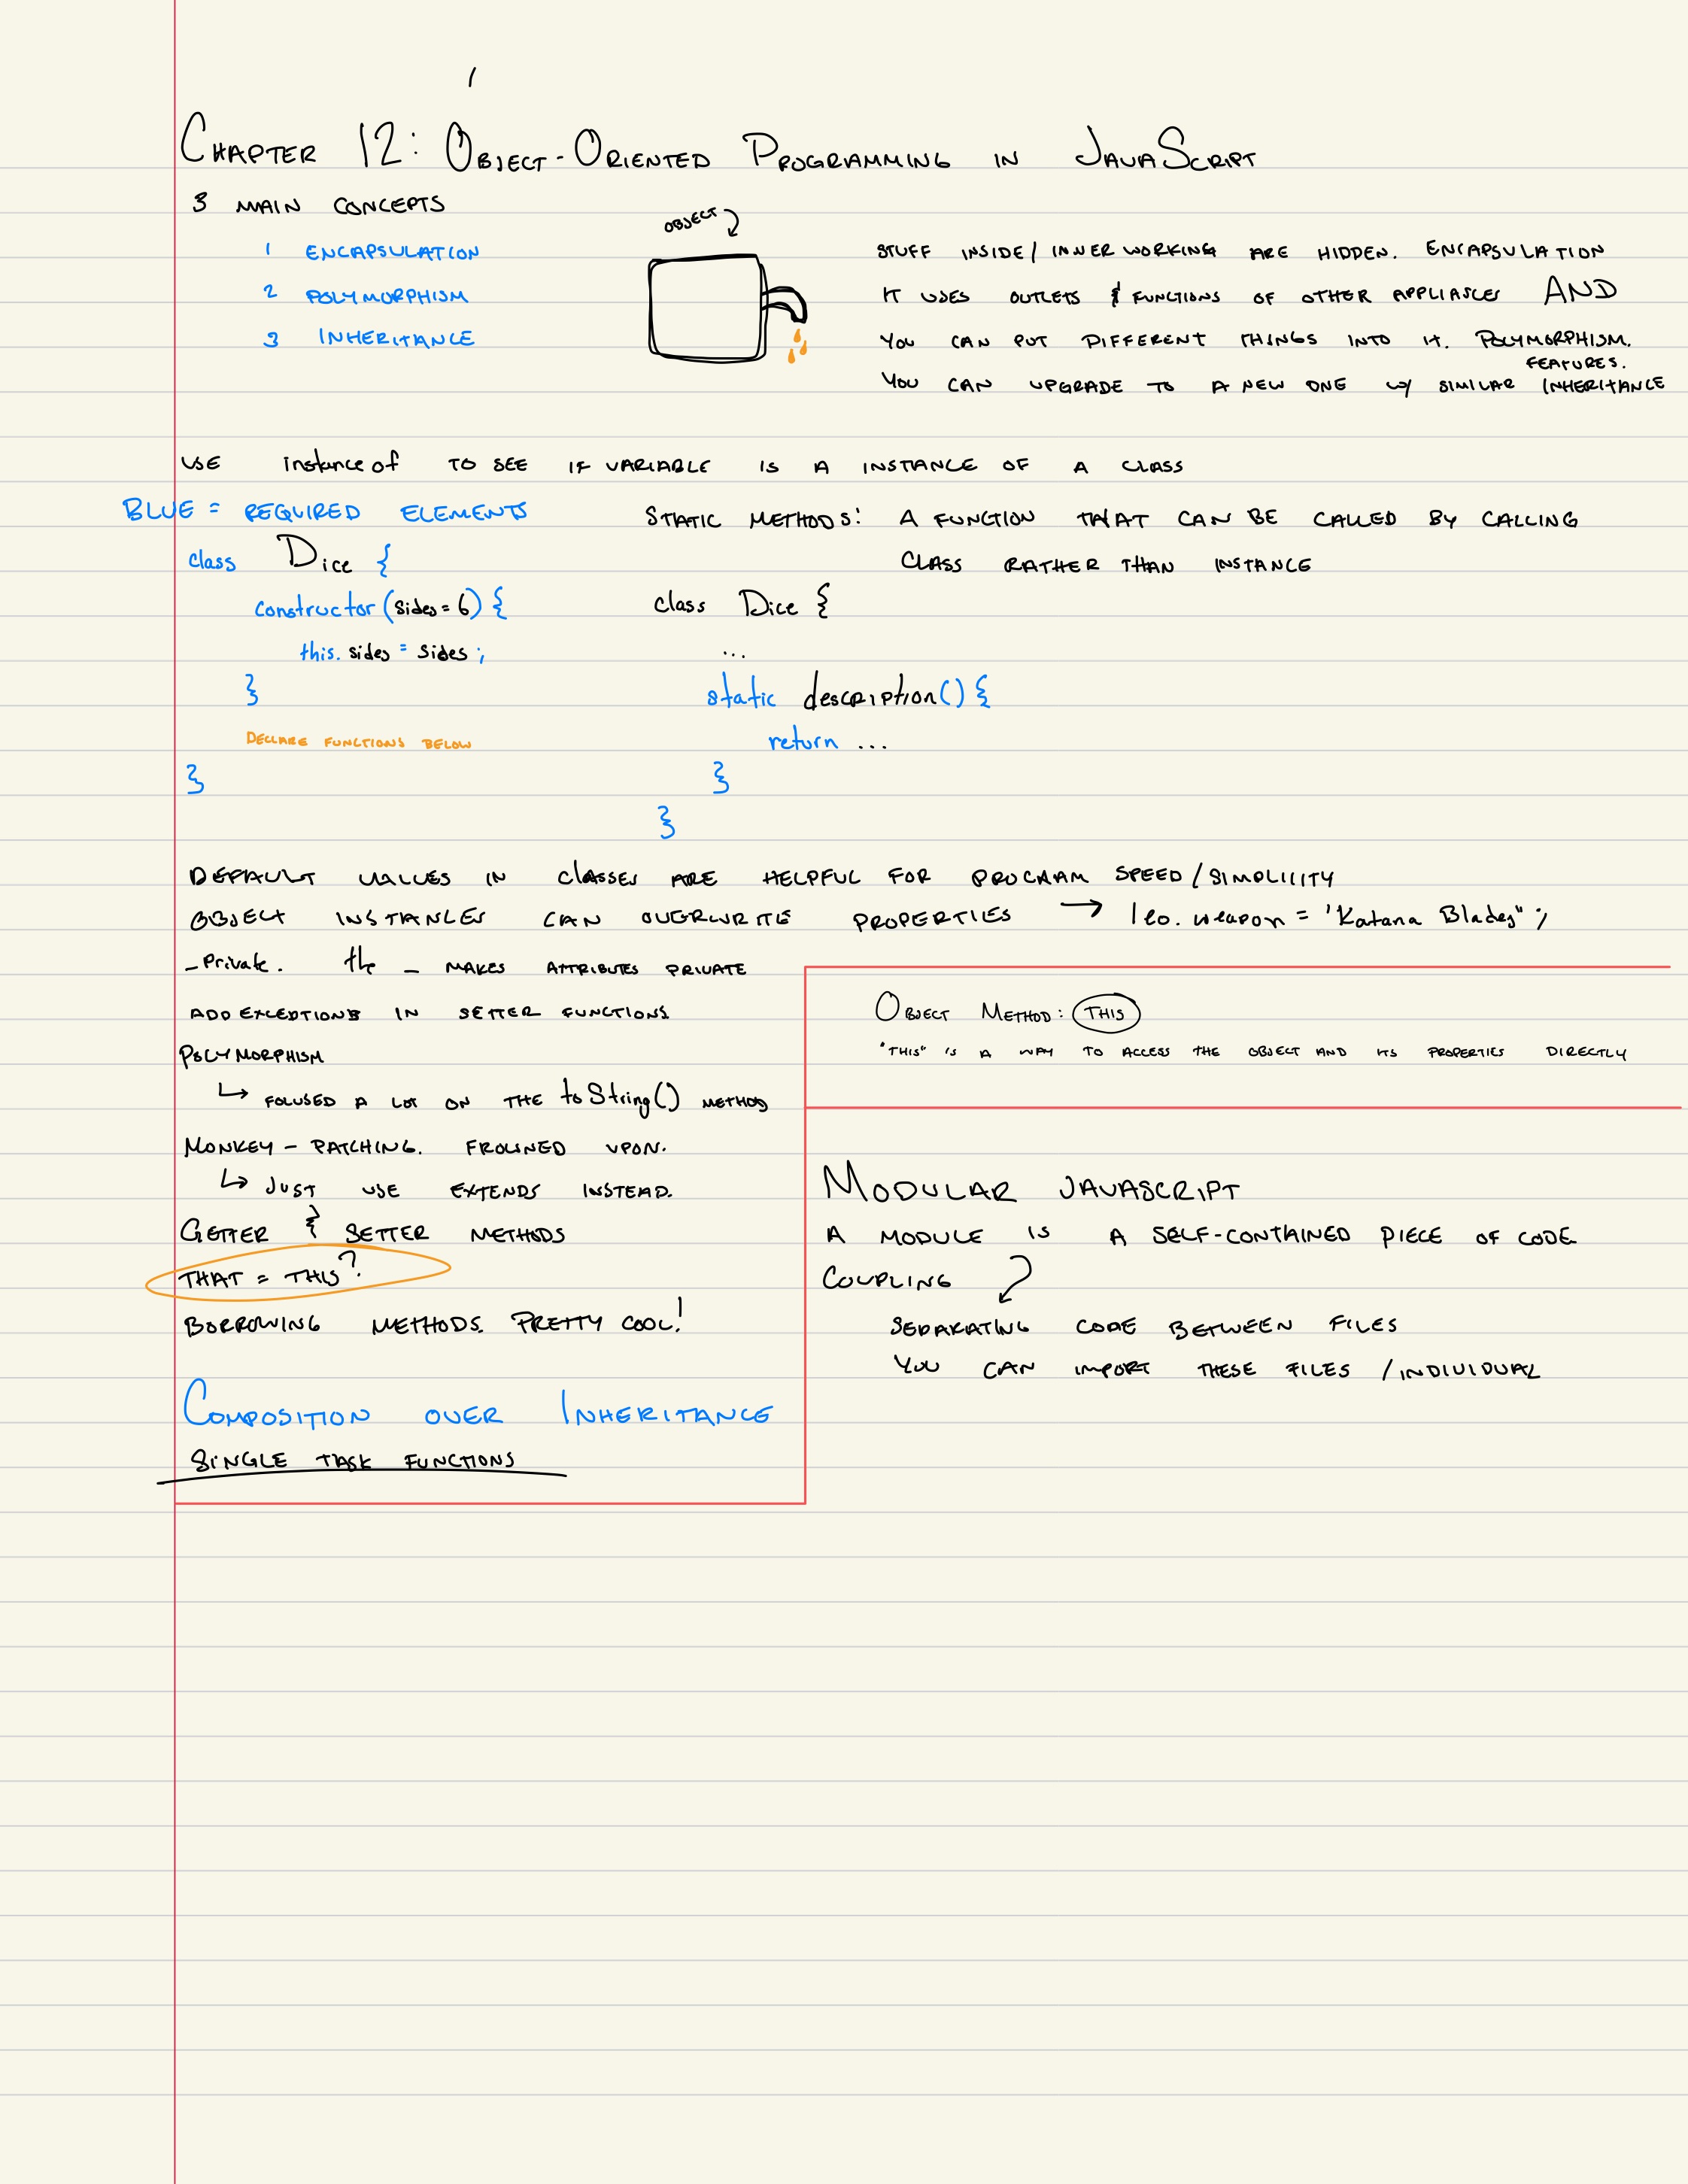 CHAPTER 12: OBJECT-ORIENTED PROGRAMMING IN JAVASCRIPT
3 MAIN CONCEPTS
1 ENCAPSULATION
2 POLYMORPHISM
3 INHERITANCE
OBJECT
STUFF INSIDE/INNER WORKING ARE HIDDEN. ENCAPSULATION
IT USES OUTLETS & FUNCTIONS OF OTHER APPLIASCES AND
YOU CAN PUT DIFFERENT THINGS INTO IT. POLYMORPHISM.
FEATURES.
YOU CAN UPGRADE TO A NEW ONE W/ SIMILAR INHERITANCE
USE instance of TO SEE IF VARIABLE IS A INSTANCE OF A CLASS
BLUE = REQUIRED ELEMENTS
class Dice {
constructor (sides = 6) {
this. sides = sides ;
}
DECLARE FUNCTIONS BELOW
}
STATIC METHODS: A FUNCTION THAT CAN BE CALLED BY CALLING
CLASS RATHER THAN INSTANCE
class Dice {
...
static description() {
return ...
}
}
DEFAULT VALUES IN classes ARE HELPFUL FOR PROGRAM SPEED/SIMPLICITY
OBJECT INSTANCES CAN OVERWRITE PROPERTIES → leo. weapon = 'Katana Blades" ;
_Private. the _ MAKES ATTRIBUTES PRIVATE
ADD EXCEPTIONS IN SETTER FUNCTIONS
POLYMORPHISM
↳ FOCUSED A LOT ON THE toString() METHOD
MONKEY - PATCHING. FROWNED UPON.
↳ JUST USE EXTENDS INSTEAD.
GETTER & SETTER METHODS
THAT = THIS?
BORROWING METHODS. PRETTY COOL!
COMPOSITION OVER INHERITANCE
SINGLE TASK FUNCTIONS
OBJECT METHOD: THIS
"THIS" IS A WAY TO ACCESS THE OBJECT AND ITS PROPERTIES DIRECTLY
MODULAR JAVASCRIPT
A MODULE IS A SELF-CONTAINED PIECE OF CODE
COUPLING
SEPARATING CODE BETWEEN FILES
YOU CAN IMPORT THESE FILES /INDIVIDUAL